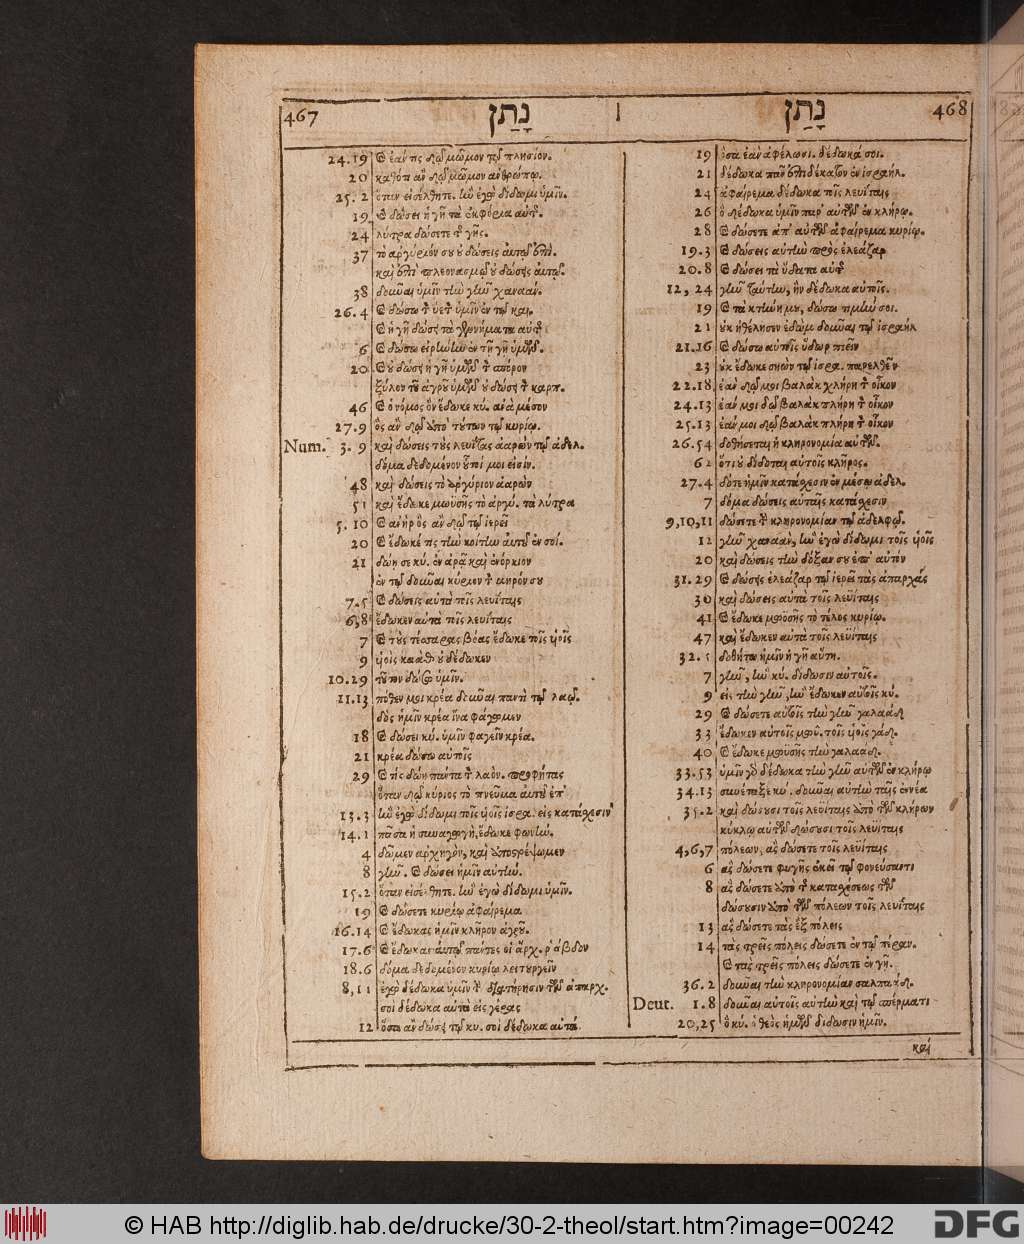 467 נָתַן נָתַן 468
24.19 ἐάν τις δῷ μῶμον τῷ πλησίον.
20 καθότι ἂν δῷ μῶμον ἀνθρώπῳ.
25.2 ὅταν εἰσέλθητε. ἣν ἐγὼ δίδωμι ὑμῖν.
19 καὶ δώσει ἡ γῆ τὰ ἐκφόρια αὐτῆς.
24 λύτρα δώσετε τῆς γῆς.
37 τὸ ἀργύριόν σου οὐ δώσεις αὐτῷ ἐπὶ.
καὶ ἐπὶ πλεονασμῷ οὐ δώσῃς αὐτῷ.
38 δοῦναι ὑμῖν τὴν γῆν χαναάν.
26.4 καὶ δώσω τὸν ὑετὸν ὑμῖν ἐν τῷ και.
καὶ ἡ γῆ δώσῃ τὰ γεννήματα αὐτῆς
6 καὶ δώσω εἰρήνην ἐν τῇ γῇ ὑμῶν.
20 καὶ οὐ δώσῃ ἡ γῆ ὑμῶν τὸν σπόρον
ξύλον τοῦ ἀγροῦ ὑμῶν οὐ δώσῃ τὸν καρπ.
46 καὶ ὁ νόμος ὃν ἔδωκε κύ. ἀνὰ μέσον
27.9 ὃς ἂν δῷ ἀπὸ τούτων τῷ κυρίῳ.
Num. 3.9 καὶ δώσεις τοὺς λευίτας ἀαρὼν τῷ ἀδελ.
δόμα δεδομένον οὗτοί μοι εἰσίν.
48 καὶ δώσεις τὸ ἀργύριον ἀαρὼν
51 καὶ ἔδωκε μωϋσῆς τὸ ἀργύ. τὰ λύτρα
5.10 καὶ ἀνὴρ ὃς ἂν δῷ τῷ ἱερεῖ
20 καὶ ἔδωκέ τις τὴν κοίτην αὐτοῦ ἐν σοί.
21 δῴη σε κύ. ἐν ἀρᾷ καὶ ἐνόρκιον
ἐν τῷ δοῦναι κύριον τὸν μηρόν σου
7.5 καὶ δώσεις αὐτὰ τοῖς λευίταις
6,8 ἔδωκεν αὐτὰ τοῖς λευίταις
7 καὶ τοὺς τέσσαρας βόας ἔδωκε τοῖς υἱοῖς
9 υἱοῖς καὰθ οὐ δέδωκεν
10.29 τοῦτον δώσω ὑμῖν.
11.13 πόθεν μοι κρέα δοῦναι παντὶ τῷ λαῷ.
δὸς ἡμῖν κρέα ἵνα φάγωμεν
18 καὶ δώσει κύ. ὑμῖν φαγεῖν κρέα.
21 κρέα δώσω αὐτοῖς
29 καὶ τίς δῴη πάντα τὸν λαὸν. προφήτας
ὅταν δῷ κύριος τὸ πνεῦμα αὐτοῦ ἐπ'
13.3 ἣν ἐγὼ δίδωμι τοῖς υἱοῖς ἰσρα. εἰς κατάχεσιν
14.1 πᾶσα ἡ συναγωγὴ, ἔδωκε φωνήν.
4 δῶμεν ἀρχηγὸν, καὶ ἀποστρέψωμεν
8 γῆν. καὶ δώσει ἡμῖν αὐτήν.
15.2 ὅταν εἰσέλθητε. ἣν ἐγὼ δίδωμι ὑμῖν.
19 καὶ δώσετε κυρίῳ ἀφαίρεμα
16.14 καὶ ἔδωκας ἡμῖν κλῆρον ἀγροῦ.
17.6 καὶ ἔδωκαν αὐτῷ πάντες οἱ ἄρχ. ῥάβδον
18.6 δόμα δεδομένον κυρίῳ λειτουργεῖν
8,11 ἐγὼ δέδωκα ὑμῖν τὴν διατήρησιν τῶν ἀπαρχ.
σοὶ δέδωκα αὐτὰ εἰς γέρας
12 ὅσα ἂν δώσῃ τῷ κυ. σοὶ δέδωκα αὐτὰ
19 ὅσα ἐὰν ἀφέλωσι. δέδωκά σοι.
21 δέδωκα πᾶν ἐπιδέκατον ἐν ἰσραήλ.
24 ἀφαίρεμα δέδωκα τοῖς λευίταις
26 ὃ δέδωκα ὑμῖν παρ' αὐτῶν ἐν κλήρῳ.
28 καὶ δώσετε ἀπ' αὐτῶν ἀφαίρεμα κυρίῳ.
19.3 καὶ δώσεις αὐτὴν πρὸς ἐλεάζαρ
20.8 καὶ δώσει τὰ ὕδατα αὐτῆς
12, 24 γῆν ταύτην, ἣν δέδωκα αὐτοῖς.
19 καὶ τὰ κτήνη μου, δώσω τιμήν σοι.
21 οὐκ ἠθέλησεν ἐδὼμ δοῦναι τῷ ἰσραήλ
21.16 καὶ δώσω αὐτοῖς ὕδωρ πιεῖν
23 οὐκ ἔδωκε σηὼν τῷ ἰσρα. παρελθεῖν
22.18 ἐὰν δῷ μοι βαλὰκ πλήρη τὸν οἶκον
24.13 ἐάν μοι δῷ βαλὰκ πλήρη τὸν οἶκον
25.13 ἐάν μοι δῷ βαλὰκ πλήρη τὸν οἶκον
26.54 δοθήσεται ἡ κληρονομία αὐτῶν.
62 ὅτι οὐ δίδοται αὐτοῖς κλῆρος.
27.4 δότε ἡμῖν κατάχεσιν ἐν μέσῳ ἀδελ.
7 δόμα δώσεις αὐταῖς κατάχεσιν
9,10,11 δώσετε τὴν κληρονομίαν τῷ ἀδελφῷ.
12 γῆν χαναὰν, ἣν ἐγὼ δίδωμι τοῖς υἱοῖς
20 καὶ δώσεις τὴν δόξαν σου ἐπ' αὐτόν
31.29 καὶ δώσῃς ἐλεάζαρ τῷ ἱερεῖ τὰς ἀπαρχάς
30 καὶ δώσεις αὐτὰ τοῖς λευΐταις
41 καὶ ἔδωκε μωϋσῆς τὸ τέλος κυρίῳ.
47 καὶ ἔδωκεν αὐτὰ τοῖς λευΐταις
32.5 δοθήτω ἡμῖν ἡ γῆ αὕτη.
7 γῆν, ἣν κύ. δίδωσιν αὐτοῖς.
9 εἰς τὴν γῆν, ἣν ἔδωκεν αὐτοῖς κύ.
29 καὶ δώσετε αὐτοῖς τὴν γῆν γαλαάδ
33 ἔδωκεν αὐτοῖς μωϋ. τοῖς υἱοῖς γάδ.
40 καὶ ἔδωκε μωϋσῆς τὴν γαλαάδ.
33.53 ὑμῖν γὰρ δέδωκα τὴν γῆν αὐτῶν ἐν κλήρῳ
34.13 συνέταξε κύ. δοῦναι αὐτὴν ταῖς ἐννέα
35.2 καὶ δώσουσι τοῖς λευΐταις ἀπὸ τῶν κλήρων
κύκλῳ αὐτῶν δώσουσι τοῖς λευΐταις
4,6,7 πόλεων, ἃς δώσετε τοῖς λευΐταις
6 ἃς δώσετε φυγῆς ἐκεῖ τῷ φονεύσαντι
8 ἃς δώσετε ἀπὸ τῆς κατασχέσεως τῶν
δώσουσιν ἀπὸ τῶν πόλεων τοῖς λευΐταις
13 ἃς δώσετε τὰς ἓξ πόλεις
14 τὰς τρεῖς πόλεις δώσετε ἐν τῷ πέραν.
καὶ τὰς τρεῖς πόλεις δώσετε ἐν γῇ.
36.2 δοῦναι τὴν κληρονομίαν σαλπαάδ.
Deut. 1.8 δοῦναι αὐτοῖς αὐτὴν καὶ τῷ σπέρματι
20,25 ὃ κύ. ὁ θεὸς ἡμῶν δίδωσιν ἡμῖν.
καὶ
© HAB http://diglib.hab.de/drucke/30-2-theol/start.htm?image=00242 DFG